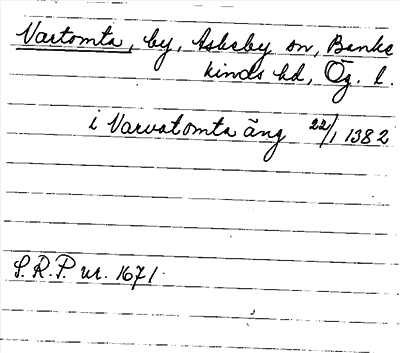 Vartomta, by, Asbeby sn, Banke
kinds hd, Ög. l.
i Varvatomta äng 22/1 1382
S.R.P. nr. 1671.